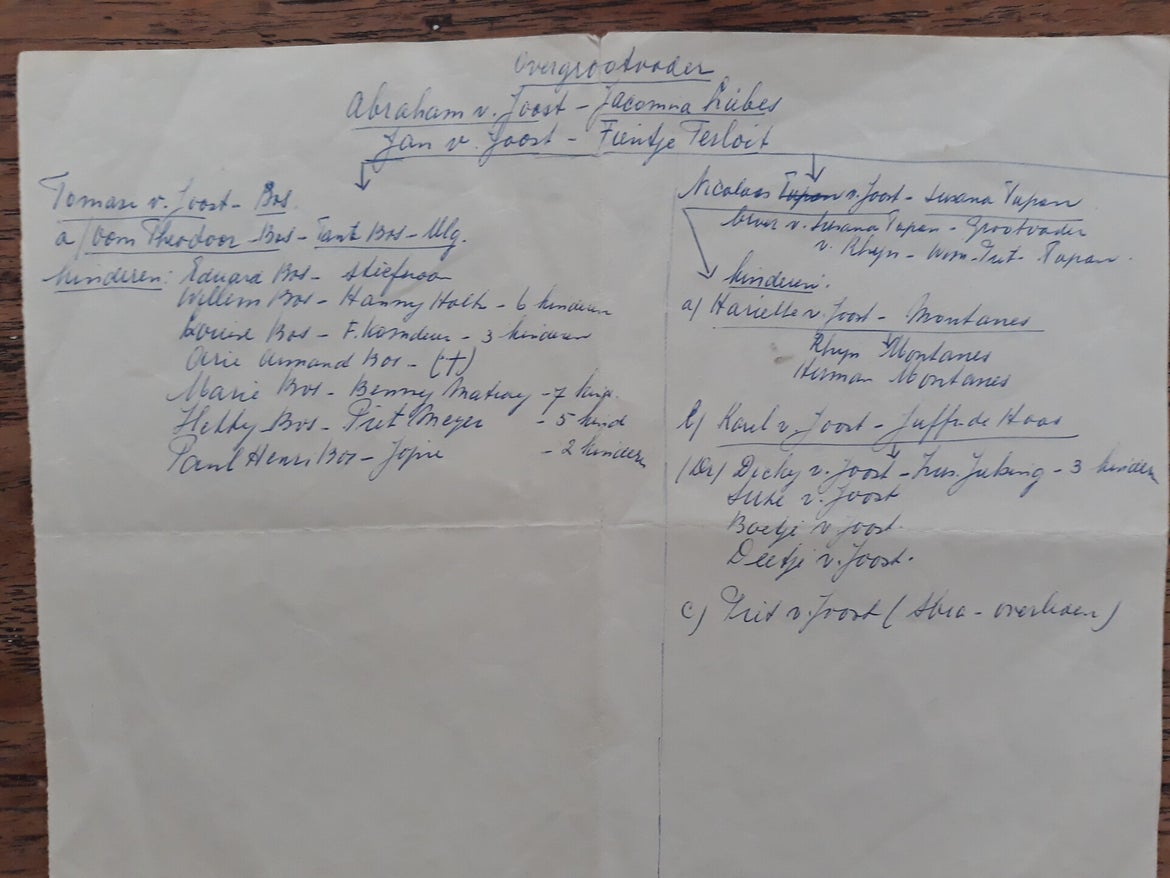 Overgrootvader
Abraham v. Joost - Jacomina
Jan v. Joost - Fientje Terloit
Tomase v. Joost - Bos.
a/ oom Theodoor Bos - Tante Bos - Ulg.
kinderen: Eduard Bos - stiefzoon
Willem Bos - Hanny Holtz - 6 kinderen
Louise Bos - F. - 3 kinderen
Arie Armand Bos - (+)
Marie Bos - Benny - 7 kind.
Hetty Bos - Piet Meyer - 5 kind
Paul Henri Bos - Jopie - 2 kinderen
Nicolaas Tapan v. Joost - Susana Tapan
broer v. Susana Tapan - Grootvader
v. Rhyn - Wim - Tapan.
kinderen:
a) Hariette v. Joost - Montanes
Rhyn Montanes
Herman Montanes
b) Karel v. Joost - Juffr. de Haas
(Dr) Dicky v. Joost - - 3 kinderen
Suze v. Joost
Boetje v. Joost.
Deetje v. Joost.
c) v. Joost ( - overleden)